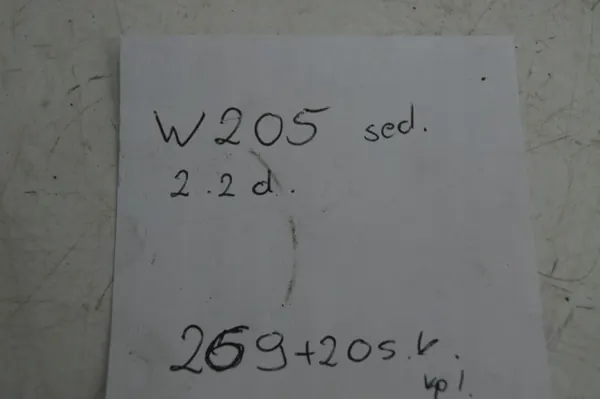 W205 sed.
2.2 d.
269+20s.v.
vpl.